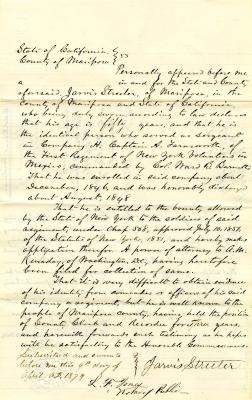 State of California }
County of Mariposa } SS
Personally appeared before me
a in and for the State and County
aforesaid, Jarvis Streeter, of Mariposa, in the
County of Mariposa and State of California
who being duly sworn according to law declares
that his age is fifty years, and that he is
the identical person who served as Sergeant
in Company H. Captain A. Farnsworth, of
the First Regiment of New York Volunteers in
Mexico, commanded by Col. Ward B. Burnett.
That he was enrolled in said company about
December, 1846, and was honorably discharged
about August, 1848.
That he is entitled to the bounty allowed
by the State of New York to the soldiers of said
regiment, under Chap 508, approved July 10, 1851,
of the Statutes of New York, 1851, and hereby makes
application therefor. A power of attorney to A. M.
Kenaday, of Washington, D.C., having heretofore
been filed for collection of same.
That it is very difficult to obtain evidence
of his identity from comrades or officers of his said
company or regiment, but he is well known to the
people of Mariposa county, having held the position
of County Clerk and Recorder for years,
and herewith forwards such testimony as he hopes
will be satisfactory to the Honorable Commissioners.
Subscribed and sworn to
before me this day of
April A.D. 1879
Jarvis Streeter
L. F. Jones
Notary Public